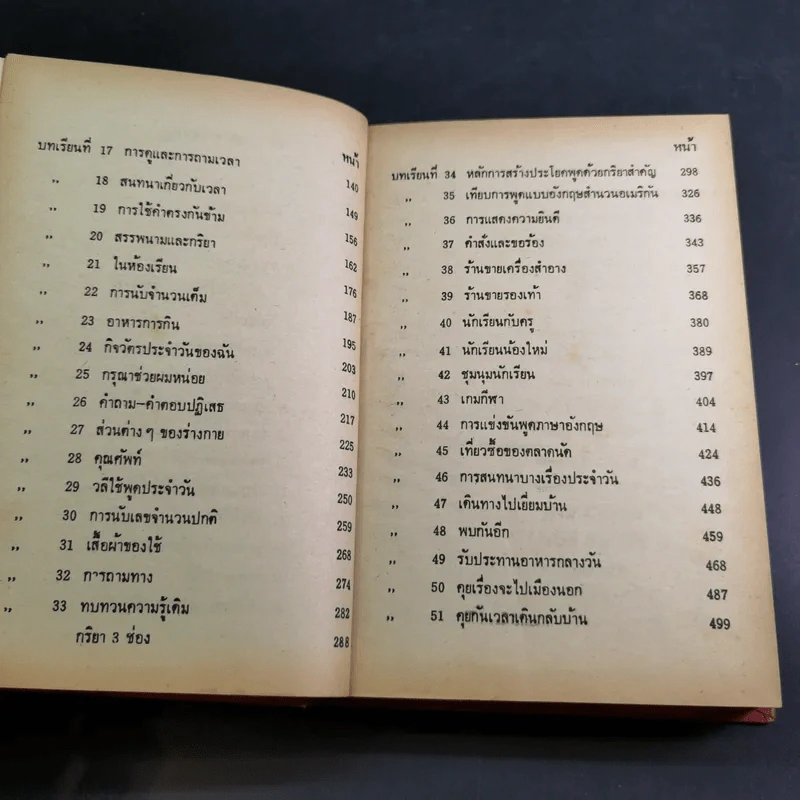 หน้า
บทเรียนที่ 17 การดูและการถามเวลา 140
" 18 สนทนาเกี่ยวกับเวลา 149
" 19 การใช้คำตรงกันข้าม 156
" 20 สรรพนามและกริยา 162
" 21 ในห้องเรียน 176
" 22 การนับจำนวนเต็ม 187
" 23 อาหารการกิน 195
" 24 กิจวัตรประจำวันของฉัน 203
" 25 กรุณาช่วยผมหน่อย 210
" 26 คำถาม–คำตอบปฏิเสธ 217
" 27 ส่วนต่าง ๆ ของร่างกาย 225
" 28 คุณศัพท์ 233
" 29 วลีใช้พูดประจำวัน 250
" 30 การนับเลขจำนวนปกติ 259
" 31 เสื้อผ้าของใช้ 268
" 32 การถามทาง 274
" 33 ทบทวนความรู้เดิม 282
กริยา 3 ช่อง 288
หน้า
บทเรียนที่ 34 หลักการสร้างประโยคพูดด้วยกริยาสำคัญ 298
" 35 เทียบการพูดแบบอังกฤษสำนวนอเมริกัน 326
" 36 การแสดงความยินดี 336
" 37 คำสั่งและขอร้อง 343
" 38 ร้านขายเครื่องสำอาง 357
" 39 ร้านขายรองเท้า 368
" 40 นักเรียนกับครู 380
" 41 นักเรียนน้องใหม่ 389
" 42 ชุมนุมนักเรียน 397
" 43 เกมกีฬา 404
" 44 การแข่งขันพูดภาษาอังกฤษ 414
" 45 เที่ยวซื้อของตลาดนัด 424
" 46 การสนทนาบางเรื่องประจำวัน 436
" 47 เดินทางไปเยี่ยมบ้าน 448
" 48 พบกันอีก 459
" 49 รับประทานอาหารกลางวัน 468
" 50 คุยเรื่องจะไปเมืองนอก 487
" 51 คุยกันเวลาเดินกลับบ้าน 499